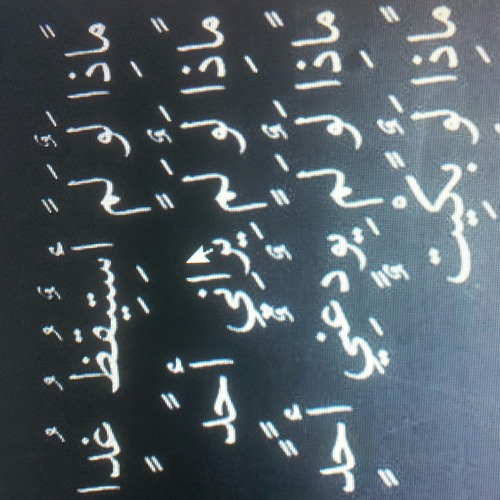 ماذا لو لم أستيقظ غدا
ماذا لو لم يراني أحد
ماذا لو لم يودعني أحد
ماذا لو بكيت